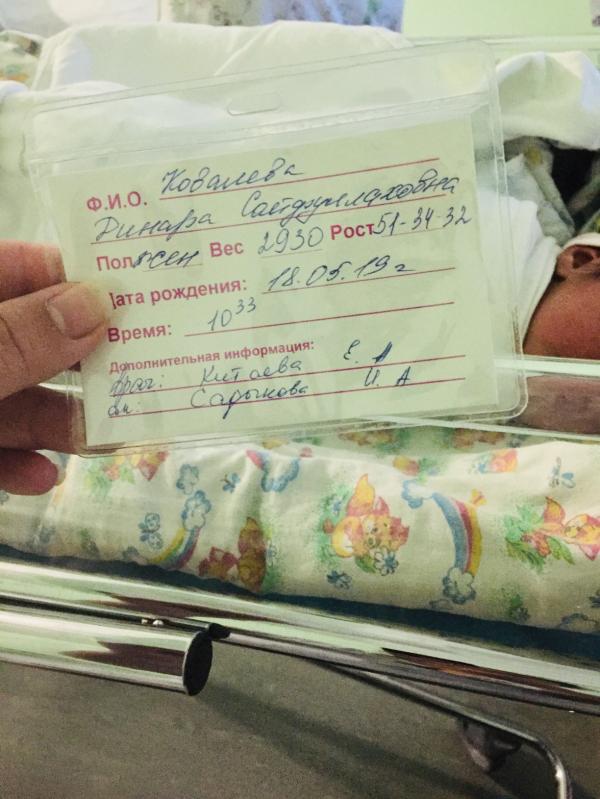 Ф.И.О. Ковалева
Динара Сайдуллаховна
Пол жен Вес 2930 Рост 51-34-32
Дата рождения: 18.05.19 г
Время: 10 33
Дополнительная информация:
Врач: Китаева Е. А
Садыкова И. А